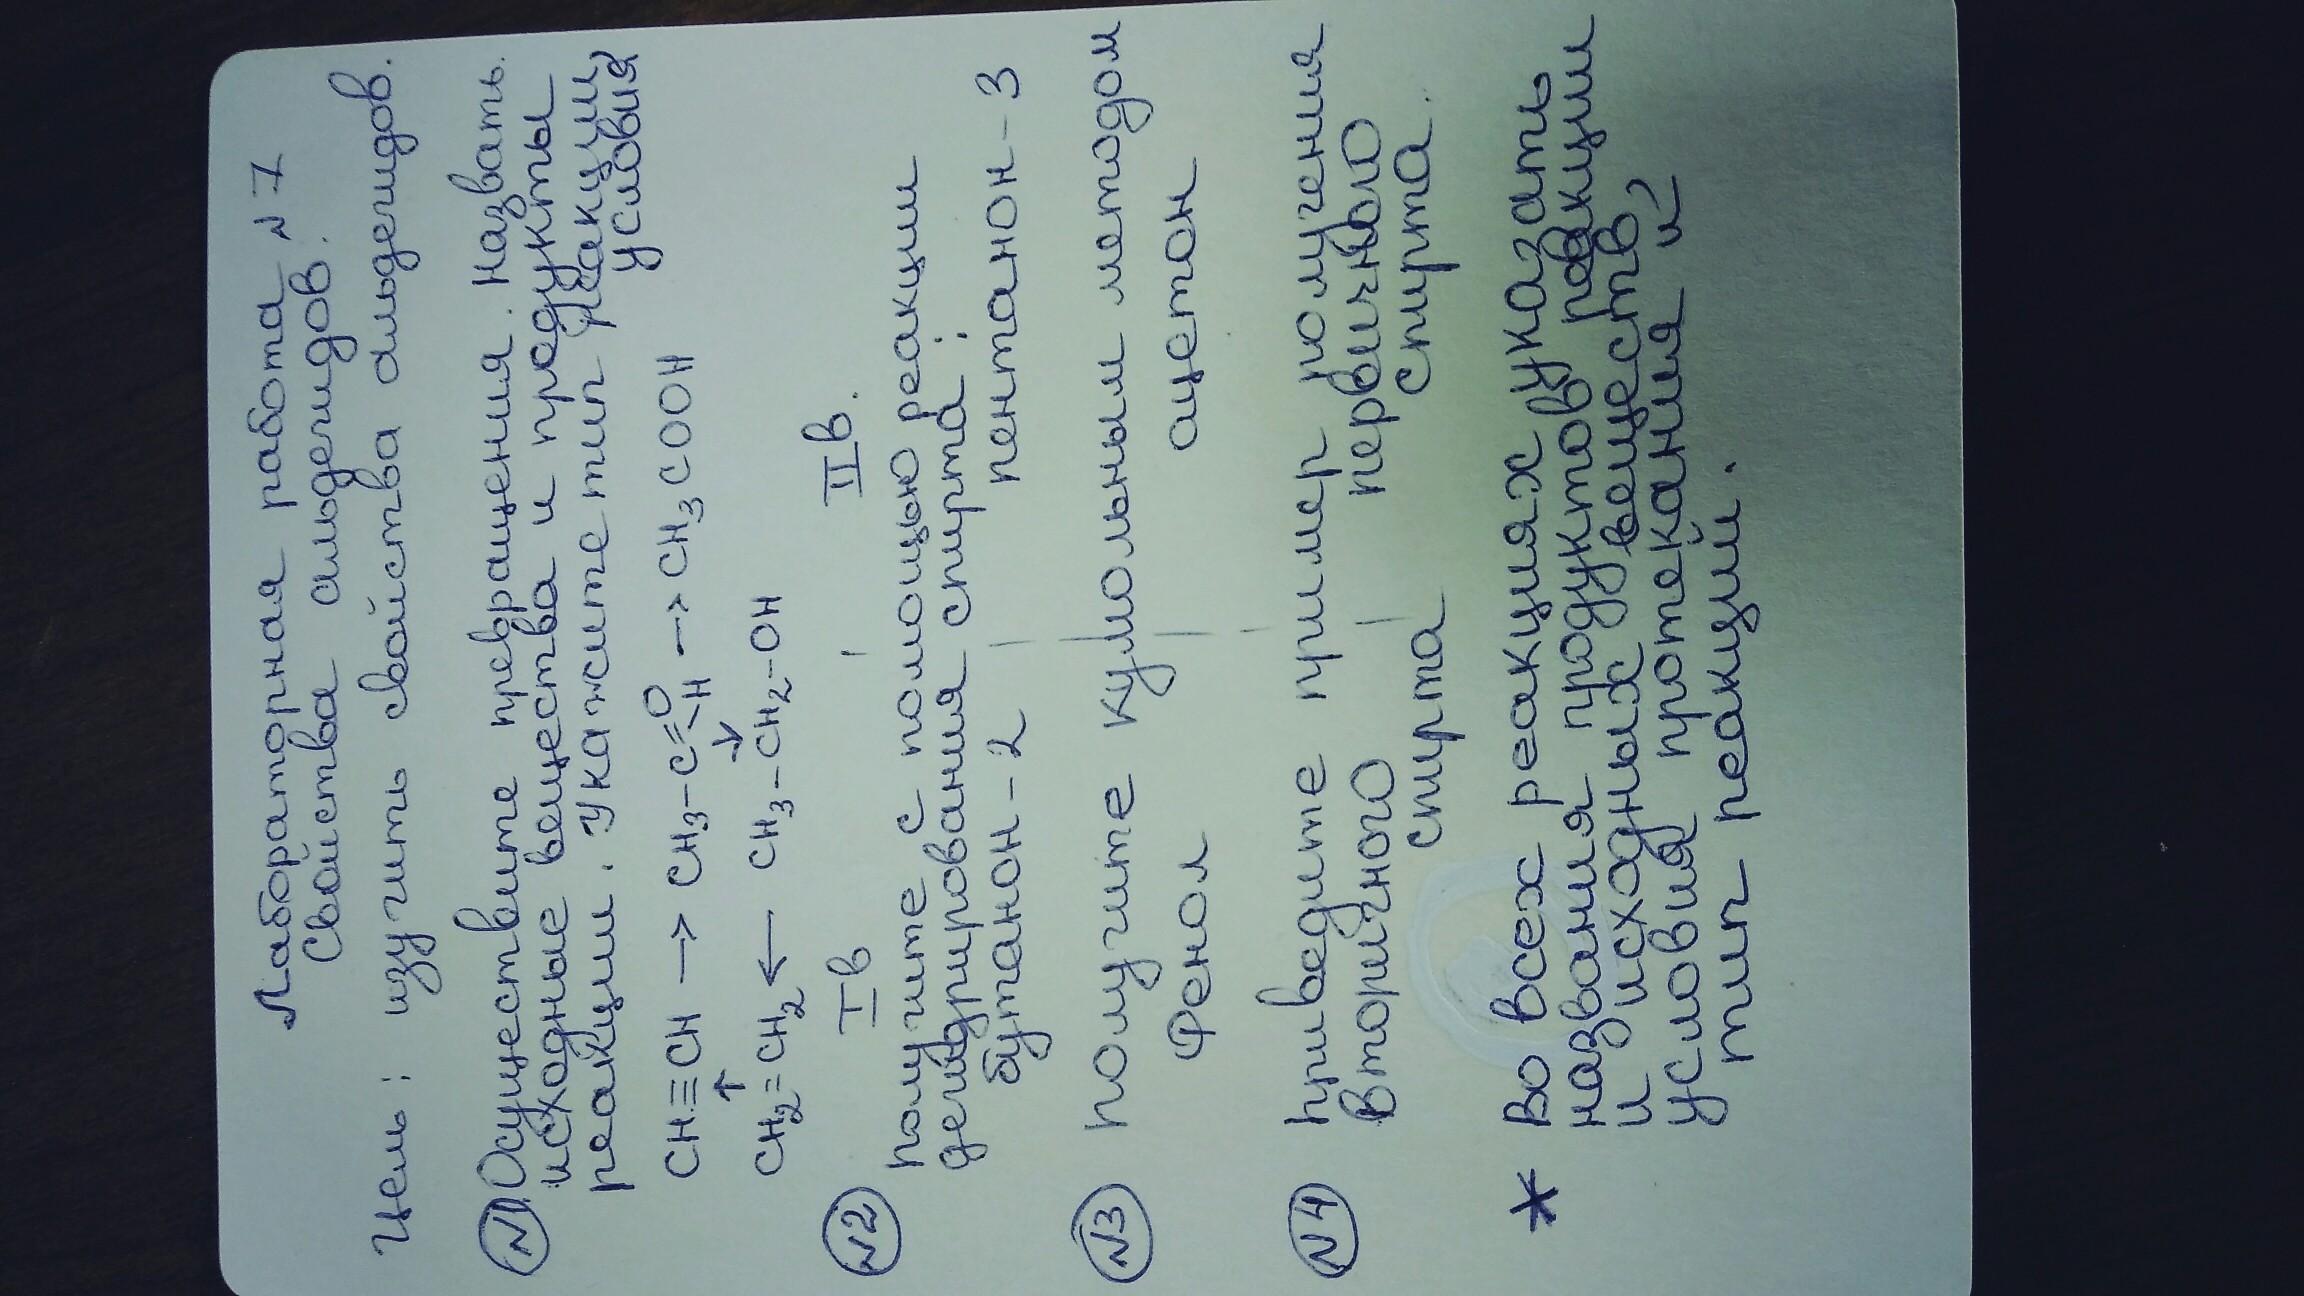 Лабораторная работа №7
Свойства альдегидов.
Цель: изучить свойства альдегидов.
№1 Осуществите превращения. Назвать
исходные вещества и продукты
реакции. Укажите тип реакции,
условия
CH≡CH → CH₃-C=O-H → CH₃COOH
↑ ↓
CH₂=CH₂ ← CH₃-CH₂-OH
Iв IIв.
№2 Получите с помощью реакции
дегидрирования спирта:
бутанон-2 пентанон-3
№3 Получите кумольным методом
Фенол ацетон
№4 Приведите пример получения
вторичного первичного
спирта спирта.
* Во всех реакциях указать
названия продуктов реакции
и исходных веществ,
условия протекания и
тип реакций.